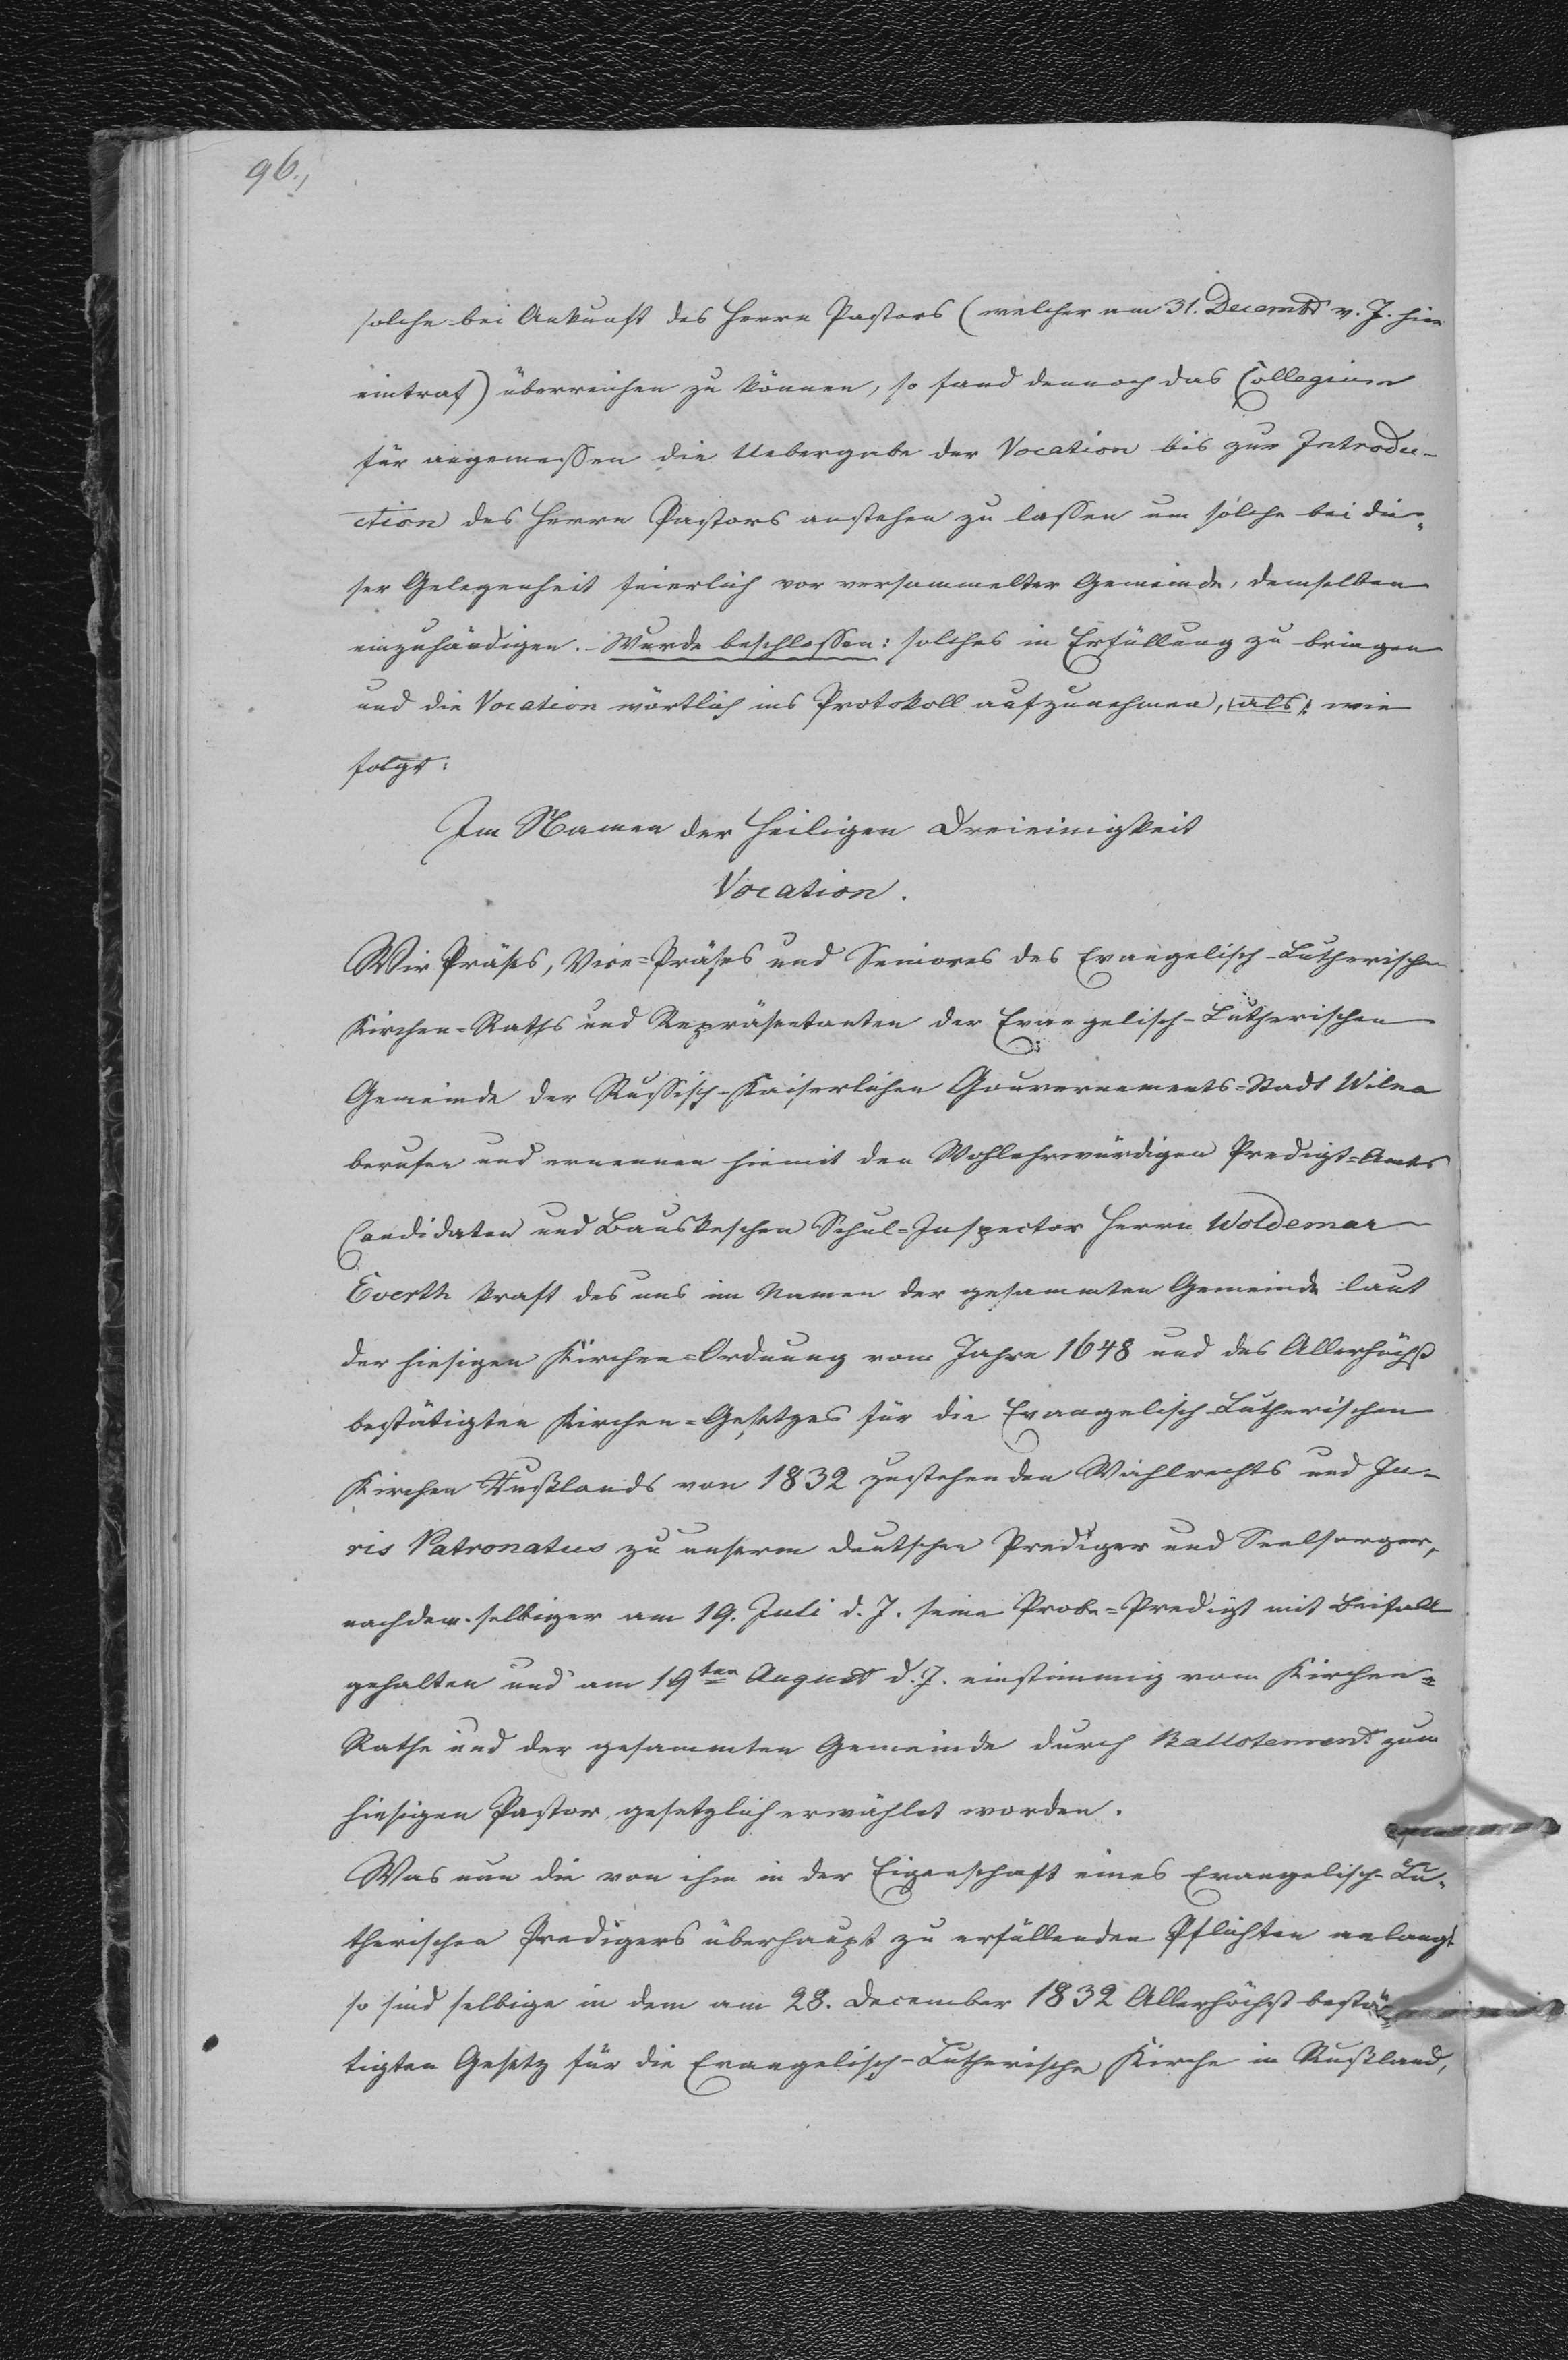 96.,
solche bei Ankunft des Herrn Pastors (welcher am 31. Decembr v. J. hier
eintraf) überreichen zu können, so fand dennoch das Collegium
für angemessen die Uebergabe der Vocation bis zur Introdu-
ction des Herrn Pastors anstehen zu lassen um solche bei die-
ser Gelegenheit feierlich vor versammelter Gemeinde, demselben
einzuhändigen. Wurde beschlossen: solches in Erfüllung zu bringen
und die Vocation wörtlich ins Protokoll aufzunehmen, als: wie
folgt:
Im Namen der Heiligen Dreieinigkeit
Vocation.
Wir Präses, Vice=Präses und Seniores des Evangelisch-Lutherischen
Kirchen=Raths und Repräsentanten der Evangelisch-Lutherischen
Gemeinde der Russisch-Kaiserlichen Gouvernements=Stadt Wilna
berufen und ernennen hiemit den Wohlehrwürdigen Predigt=Amts
Candidaten und Bauskeschen Schul=Inspector Herrn Woldemar
Everth kraft des uns im Namen der gesammten Gemeinde laut
der hiesigen Kirchen=Ordnung vom Jahre 1648 und des Allerhöchst
bestätigten Kirchen=Gesetzes für die Evangelisch-Lutherischen
Kirchen Rußlands von 1832 zustehenden Wahlrechts und Ju-
ris Patronatus zu unserm deutschen Prediger und Seelsorger,
nachdem selbiger am 19. Juli d. J. seine Probe=Predigt mit Beifall
gehalten und am 19ten August d. J. einstimmig vom Kirchen=
Rathe und der gesammten Gemeinde durch Ballotement zum
hiesigen Pastor gesetzlich erwählet worden.
Was nun die von ihm in der Eigenschaft eines Evangelisch-Lu-
therischen Predigers überhaupt zu erfüllenden Pflichten anlangt
so sind selbige in dem am 28. December 1832 Allerhöchst bestä=
tigten Gesetz für die Evangelisch-Lutherische Kirche in Rußland,